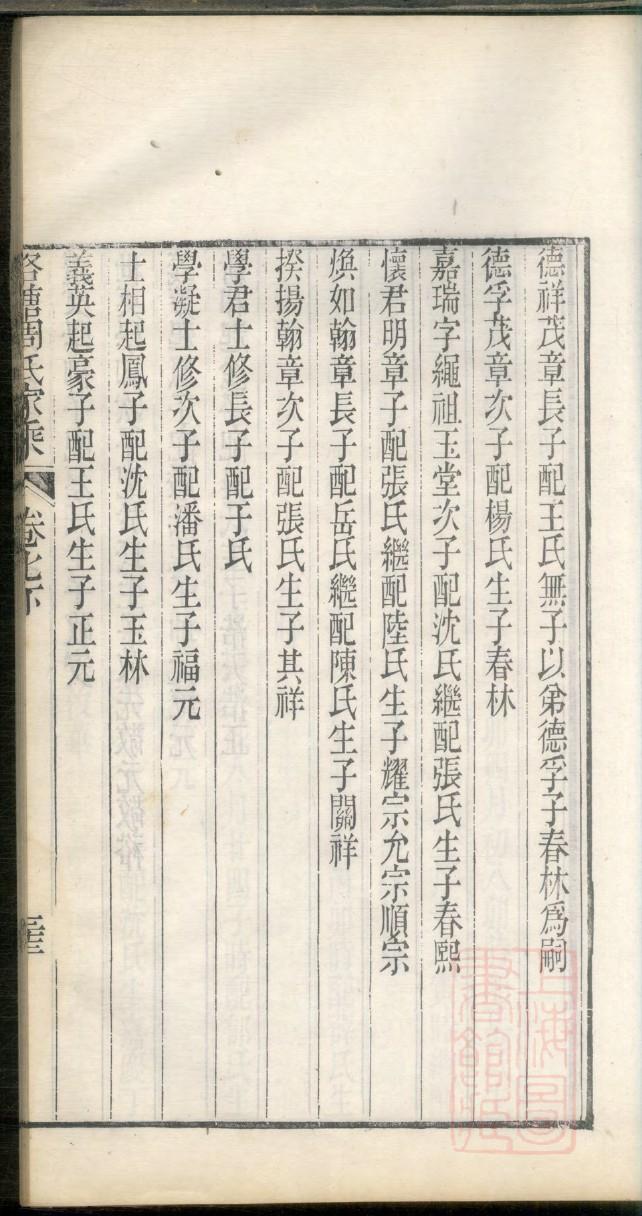 德祥茂章長子配王氏無子以弟德孚子春林爲嗣
德孚茂章次子配楊氏生子春林
嘉瑞字繩祖玉堂次子配沈氏繼配張氏生子春熙
懷君明章子配張氏繼配陸氏生子耀宗允宗順宗
煥如翰章長子配岳氏繼配陳氏生子關祥
揆揚翰章次子配張氏生子其祥
學君士修長子配于氏
學凝士修次子配潘氏生子福元
士相起鳳子配沈氏生子玉林
義英起豪子配王氏生子正元
周氏家乘 卷之下
上海圖書館藏